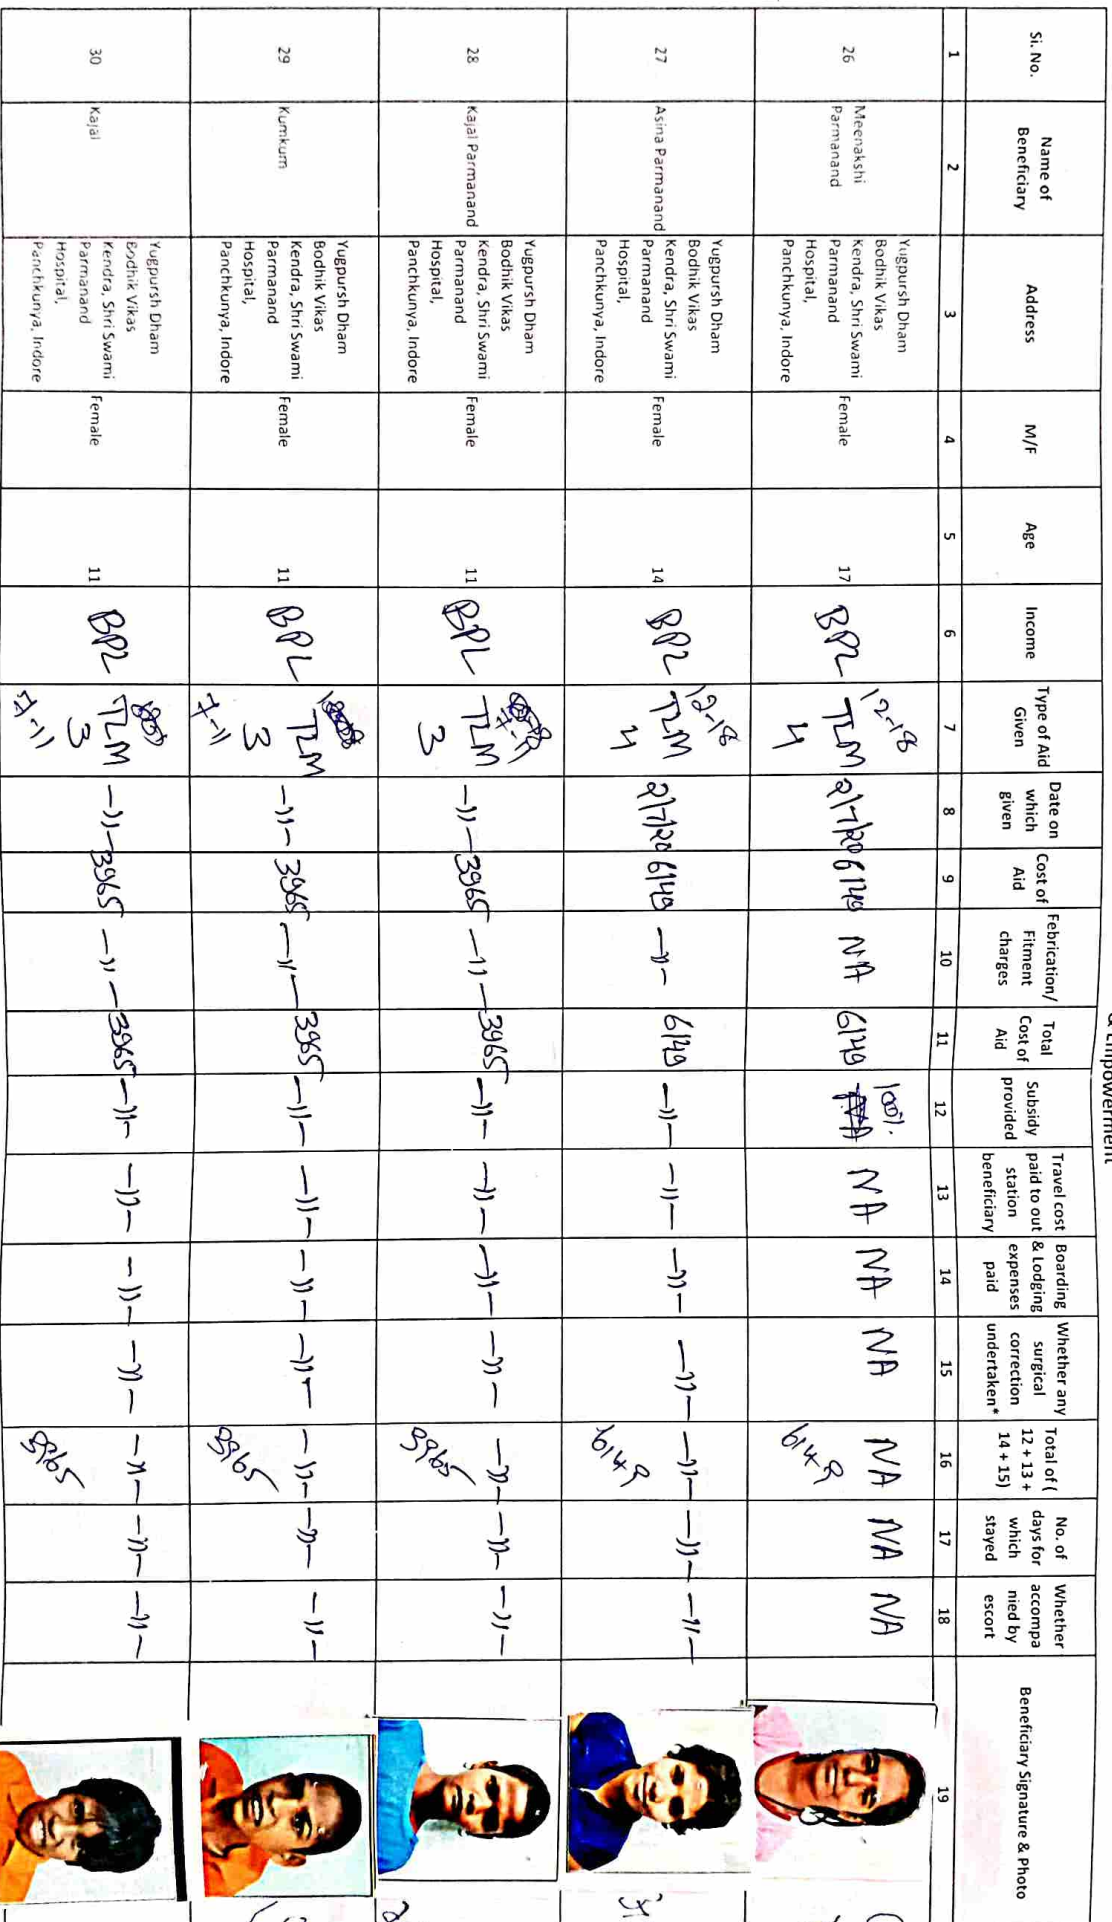 & Empowerment
Si. No.
Name of Beneficiary
Address
M/F
Age
Income
Type of Aid Given
Date on which given
Cost of Aid
Febrication/ Fitment charges
Total Cost of Aid
Subsidy provided
Travel cost paid to out station beneficiary
Boarding & Lodging expenses paid
Whether any surgical correction undertaken*
Total of ( 12 + 13 + 14 + 15)
No. of days for which stayed
Whether accompa nied by escort
Beneficiary Signature & Photo
1 2 3 4 5 6 7 8 9 10 11 12 13 14 15 16 17 18 19
26 Meenakshi Parmanand
Yugpursh Dham
Bodhik Vikas
Kendra, Shri Swami
Parmanand
Hospital,
Panchkunya, Indore
Female 17 BPL 12-18 TLM 4 2/7/20 6149 NA 6149 100%. NA NA NA NA 6149 NA NA
27 Asina Parmanand
Yugpursh Dham
Bodhik Vikas
Kendra, Shri Swami
Parmanand
Hospital,
Panchkunya, Indore
Female 14 BPL 12-18 TLM 4 2/7/20 6149 -"- 6149 -"- -"- -"- -"- -"- 6149 -"- -"-
28 Kajal Parmanand
Yugpursh Dham
Bodhik Vikas
Kendra, Shri Swami
Parmanand
Hospital,
Panchkunya, Indore
Female 11 BPL 7-11 TLM 3 -"- 3965 -"- 3965 -"- -"- -"- -"- -"- 3965 -"- -"-
29 Kumkum
Yugpursh Dham
Bodhik Vikas
Kendra, Shri Swami
Parmanand
Hospital,
Panchkunya, Indore
Female 11 BPL TLM 3 7-11 -"- 3965 -"- 3965 -"- -"- -"- -"- -"- 3965 -"- -"-
30 Kajal
Yugpursh Dham
Bodhik Vikas
Kendra, Shri Swami
Parmanand
Hospital,
Panchkunya, Indore
Female 11 BPL TLM 3 7-11 -"- 3965 -"- 3965 -"- -"- -"- -"- -"- 3965 -"- -"-